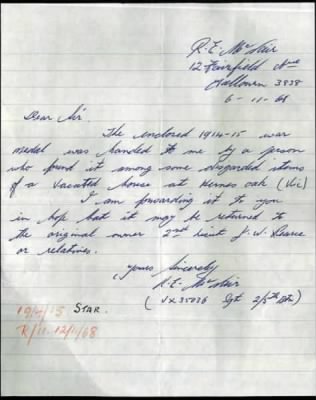 R. E. McNair
12 Fairfield Ave
Hallourn 3838
6-11-68
Dear Sir.
The enclosed 1914-15 war
medal was handed to me by a person
who found it among some disgarded items
of a vacated house at Hernes oak (Vic)
I am forwarding it to you
in hope that it may be returned to
the original owner 2nd Lieut J. W. Pearce
or relatives.
Yours Sincerely
R. E. McNair
(VX35036 Sgt 2/5th Btn)
1914/15 STAR.
R/11. 12/11/68